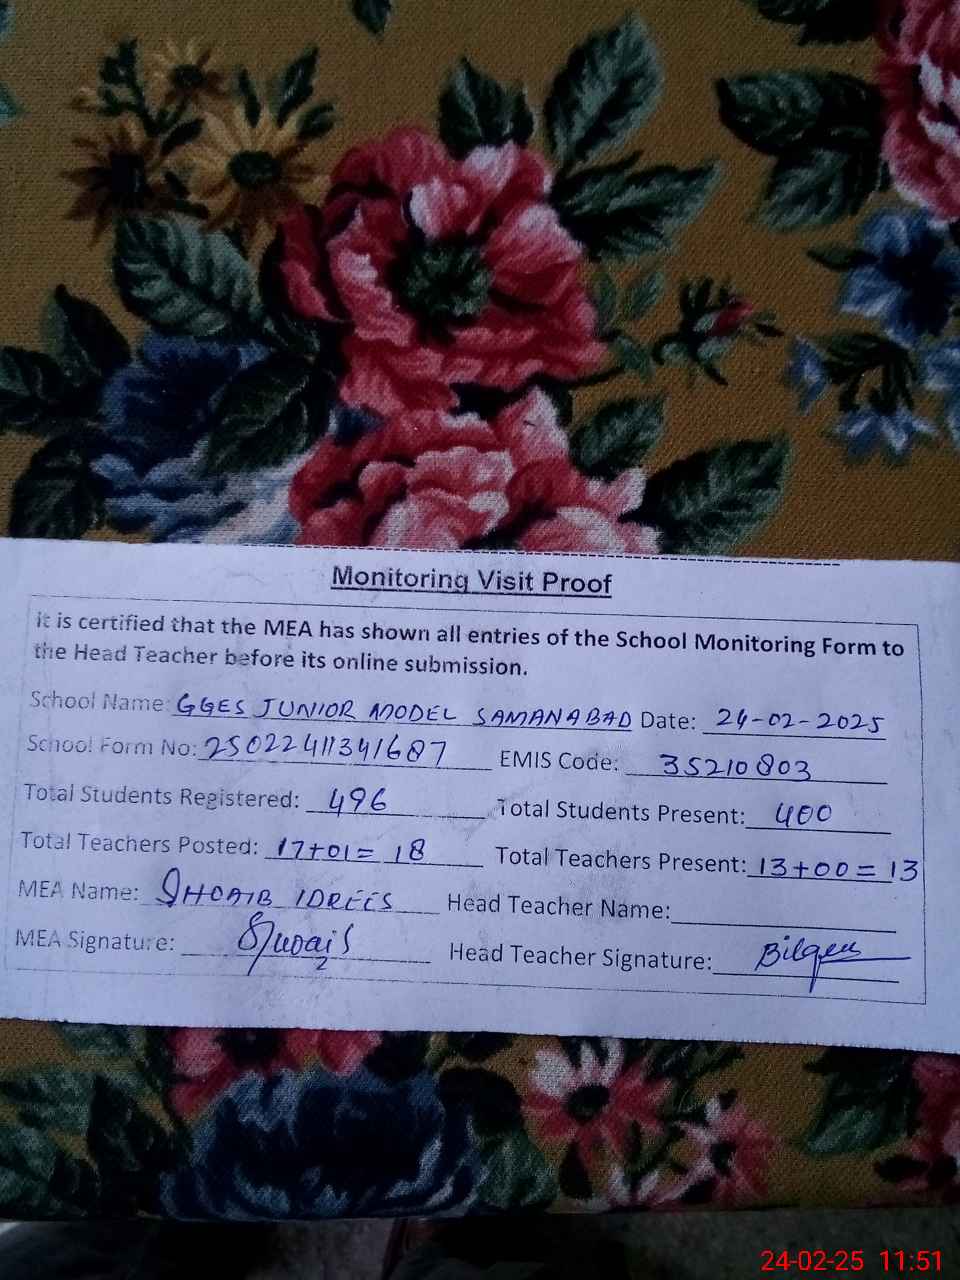 Monitoring Visit Proof
It is certified that the MEA has shown all entries of the School Monitoring Form to
the Head Teacher before its online submission.
School Name: GGES JUNIOR MODEL SAMANABAD Date: 24-02-2025
School Form No: 25022411341687 EMIS Code: 35210803
Total Students Registered: 496 Total Students Present: 400
Total Teachers Posted: 17+01= 18 Total Teachers Present: 13+00=13
MEA Name: SHOAIB IDREES Head Teacher Name:
MEA Signature: Head Teacher Signature:
24-02-25 11:51